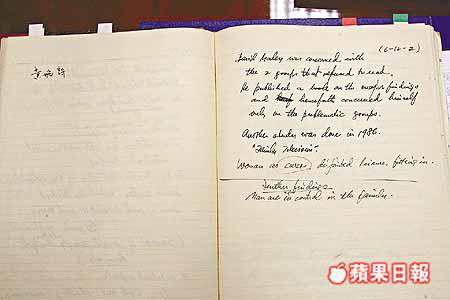 (6-16-2)
David Morley was concerned with
the 2 groups that refused to read.
He published a book on the major findings
and henceforth concerned himself
only on the problematic groups.
Another studies was done in 1986.
"Family Television".
Woman as carer; disjointed leisure, fitting in.
Further findings
Man are in control in the family.
蘋果日報